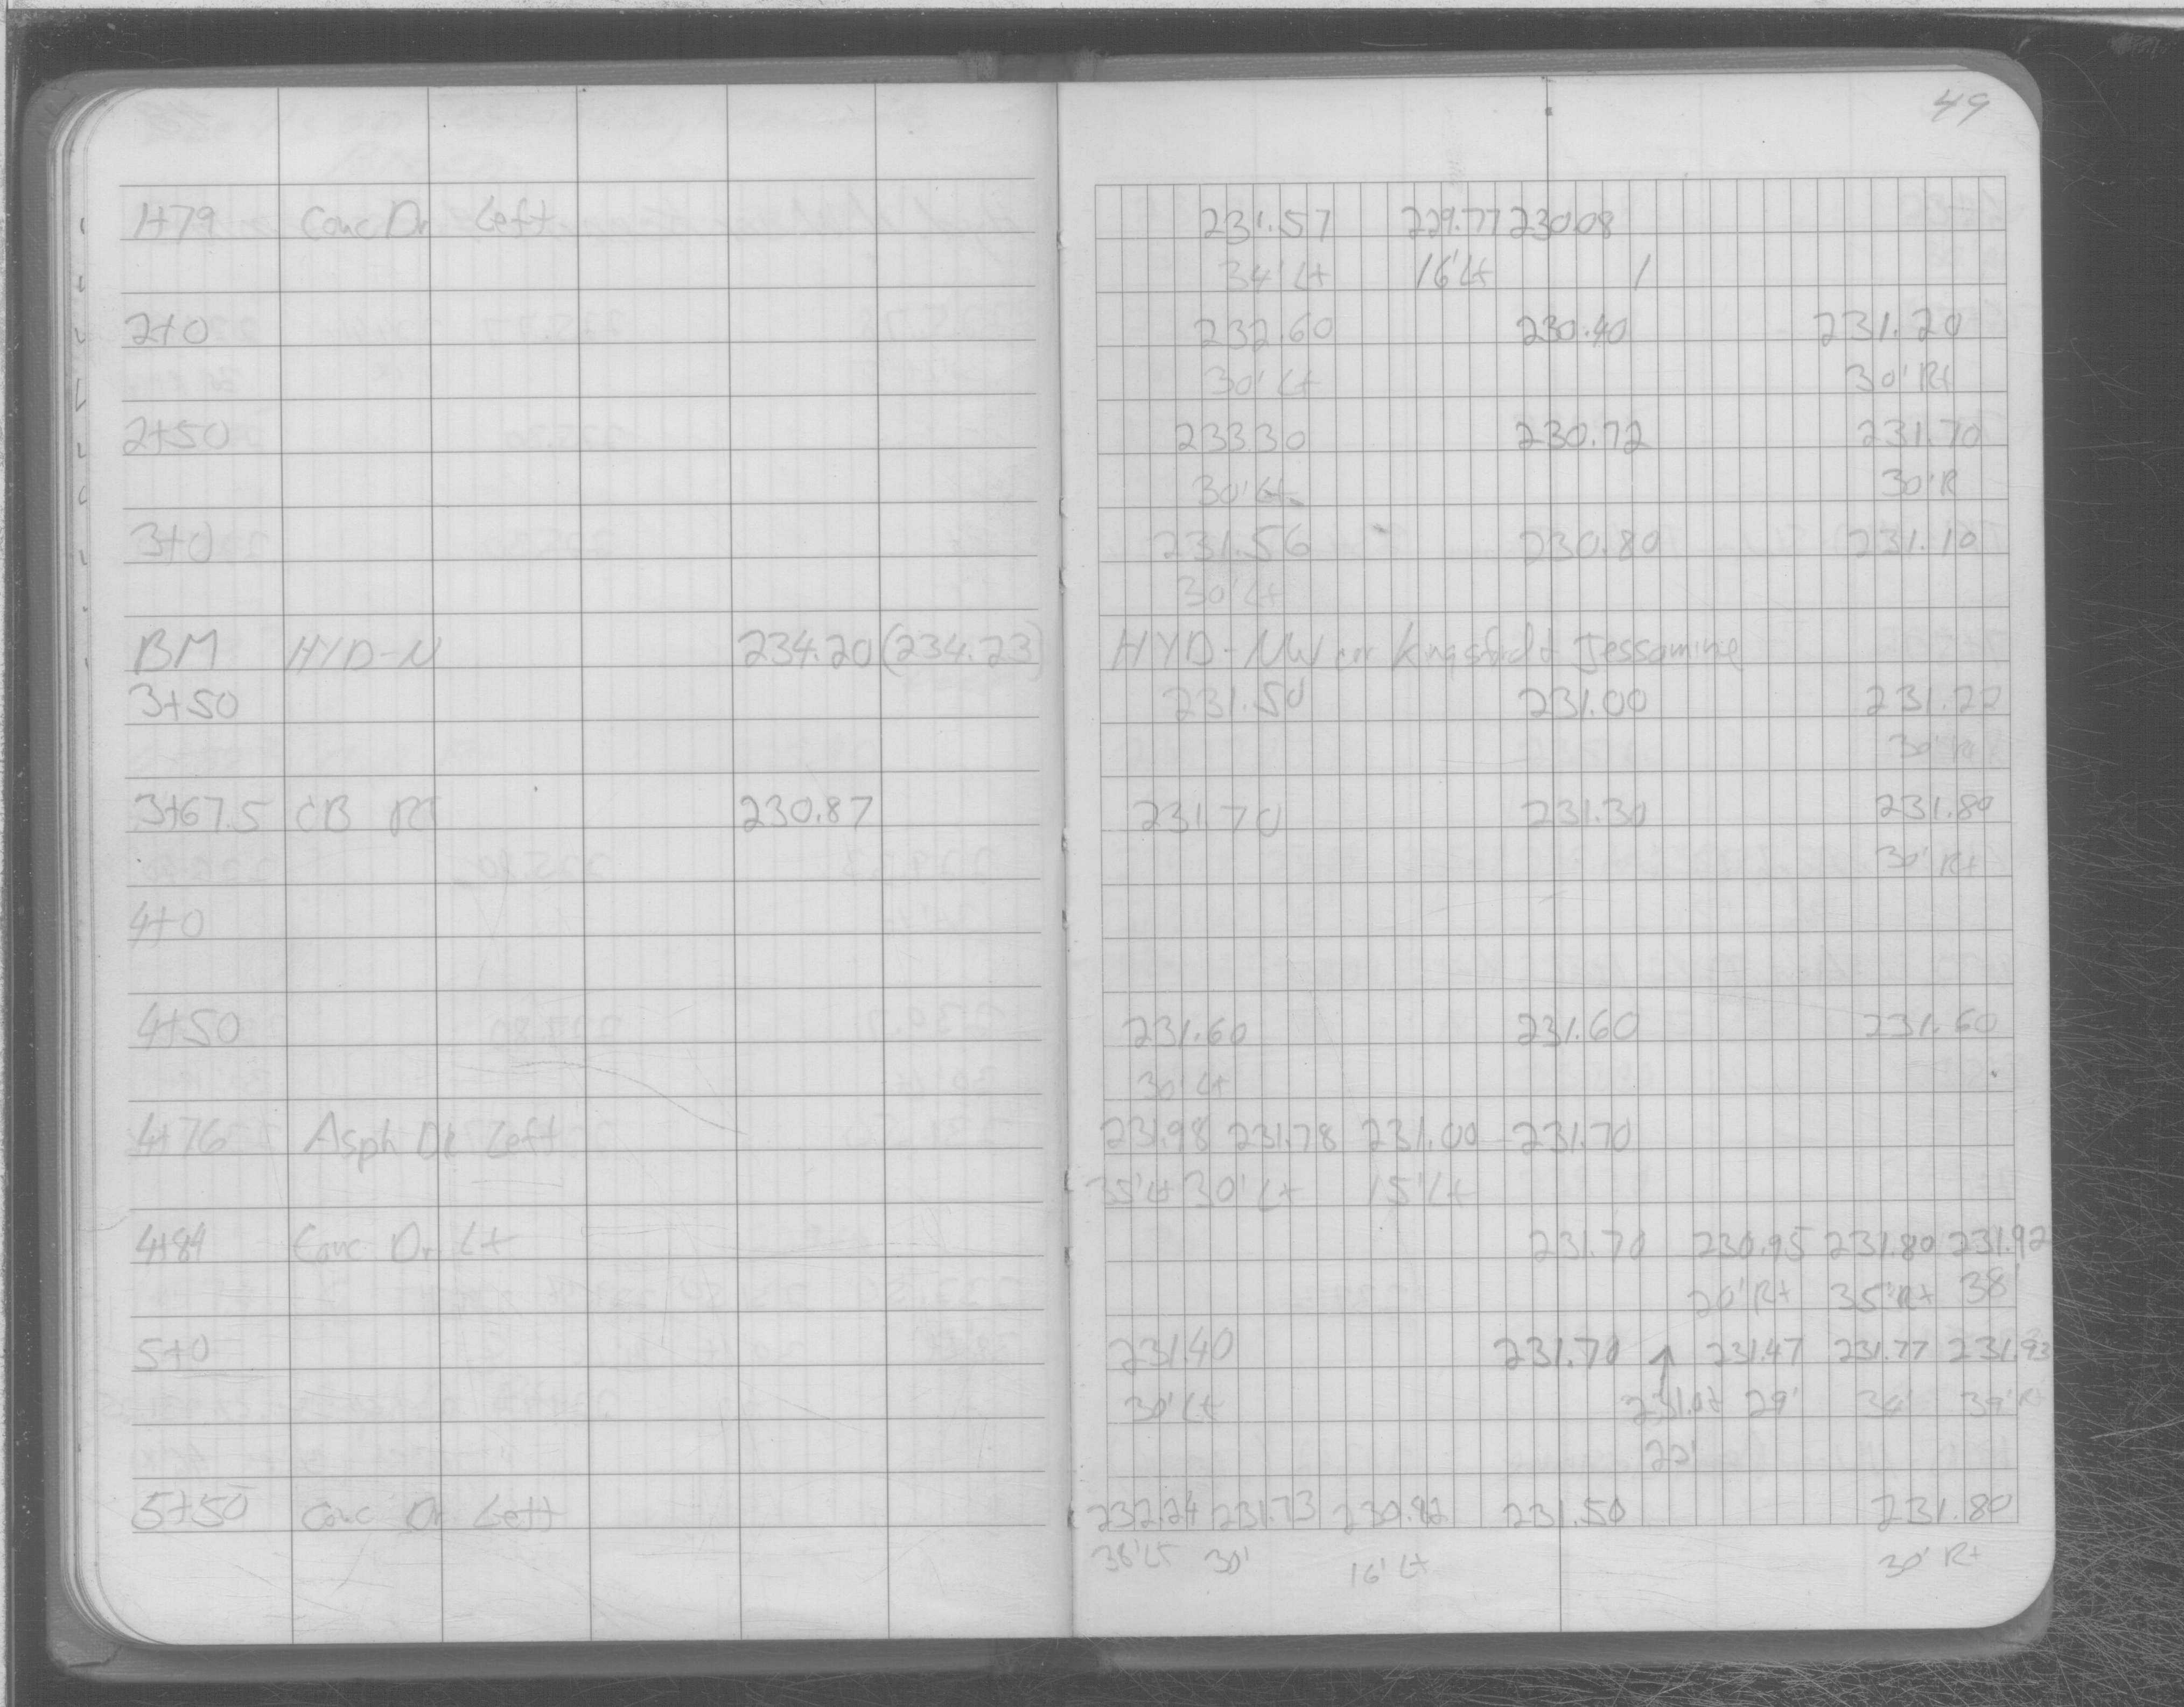 49
1+79 Conc Dr Left 231.57 229.77 230.08
34' Lt 16' Lt /
2+0 232.60 230.40 231.20
30' Lt 30' Rt
2+50 233.30 230.72 231.70
30' Lt 30' R
3+0 231.56 230.80 231.10
30' Lt
BM HYD-N 234.20 (234.23) HYD-NW cor Kingsfield & Jessamine
3+50 231.50 231.00 231.22
30' Rt
3+67.5 CB Rt 230.87 231.70 231.30 231.80
30' Rt
4+0
4+50 231.60 231.60 231.60
30' Lt
4+76 Asph Dr Left 231.98 231.78 231.00 231.70
35' Lt 30' Lt 15' Lt
4+84 Conc Dr Lt 231.70 230.95 231.80 231.92
20' Rt 35' Rt 38'
5+0 231.40 231.70 ↑ 231.47 231.77 231.93
30' Lt 29' 34' 39' Rt
22'
5+50 Conc Dr Left 232.24 231.73 230.82 231.50 231.80
38' Lt 30' 16' Lt 30' Rt